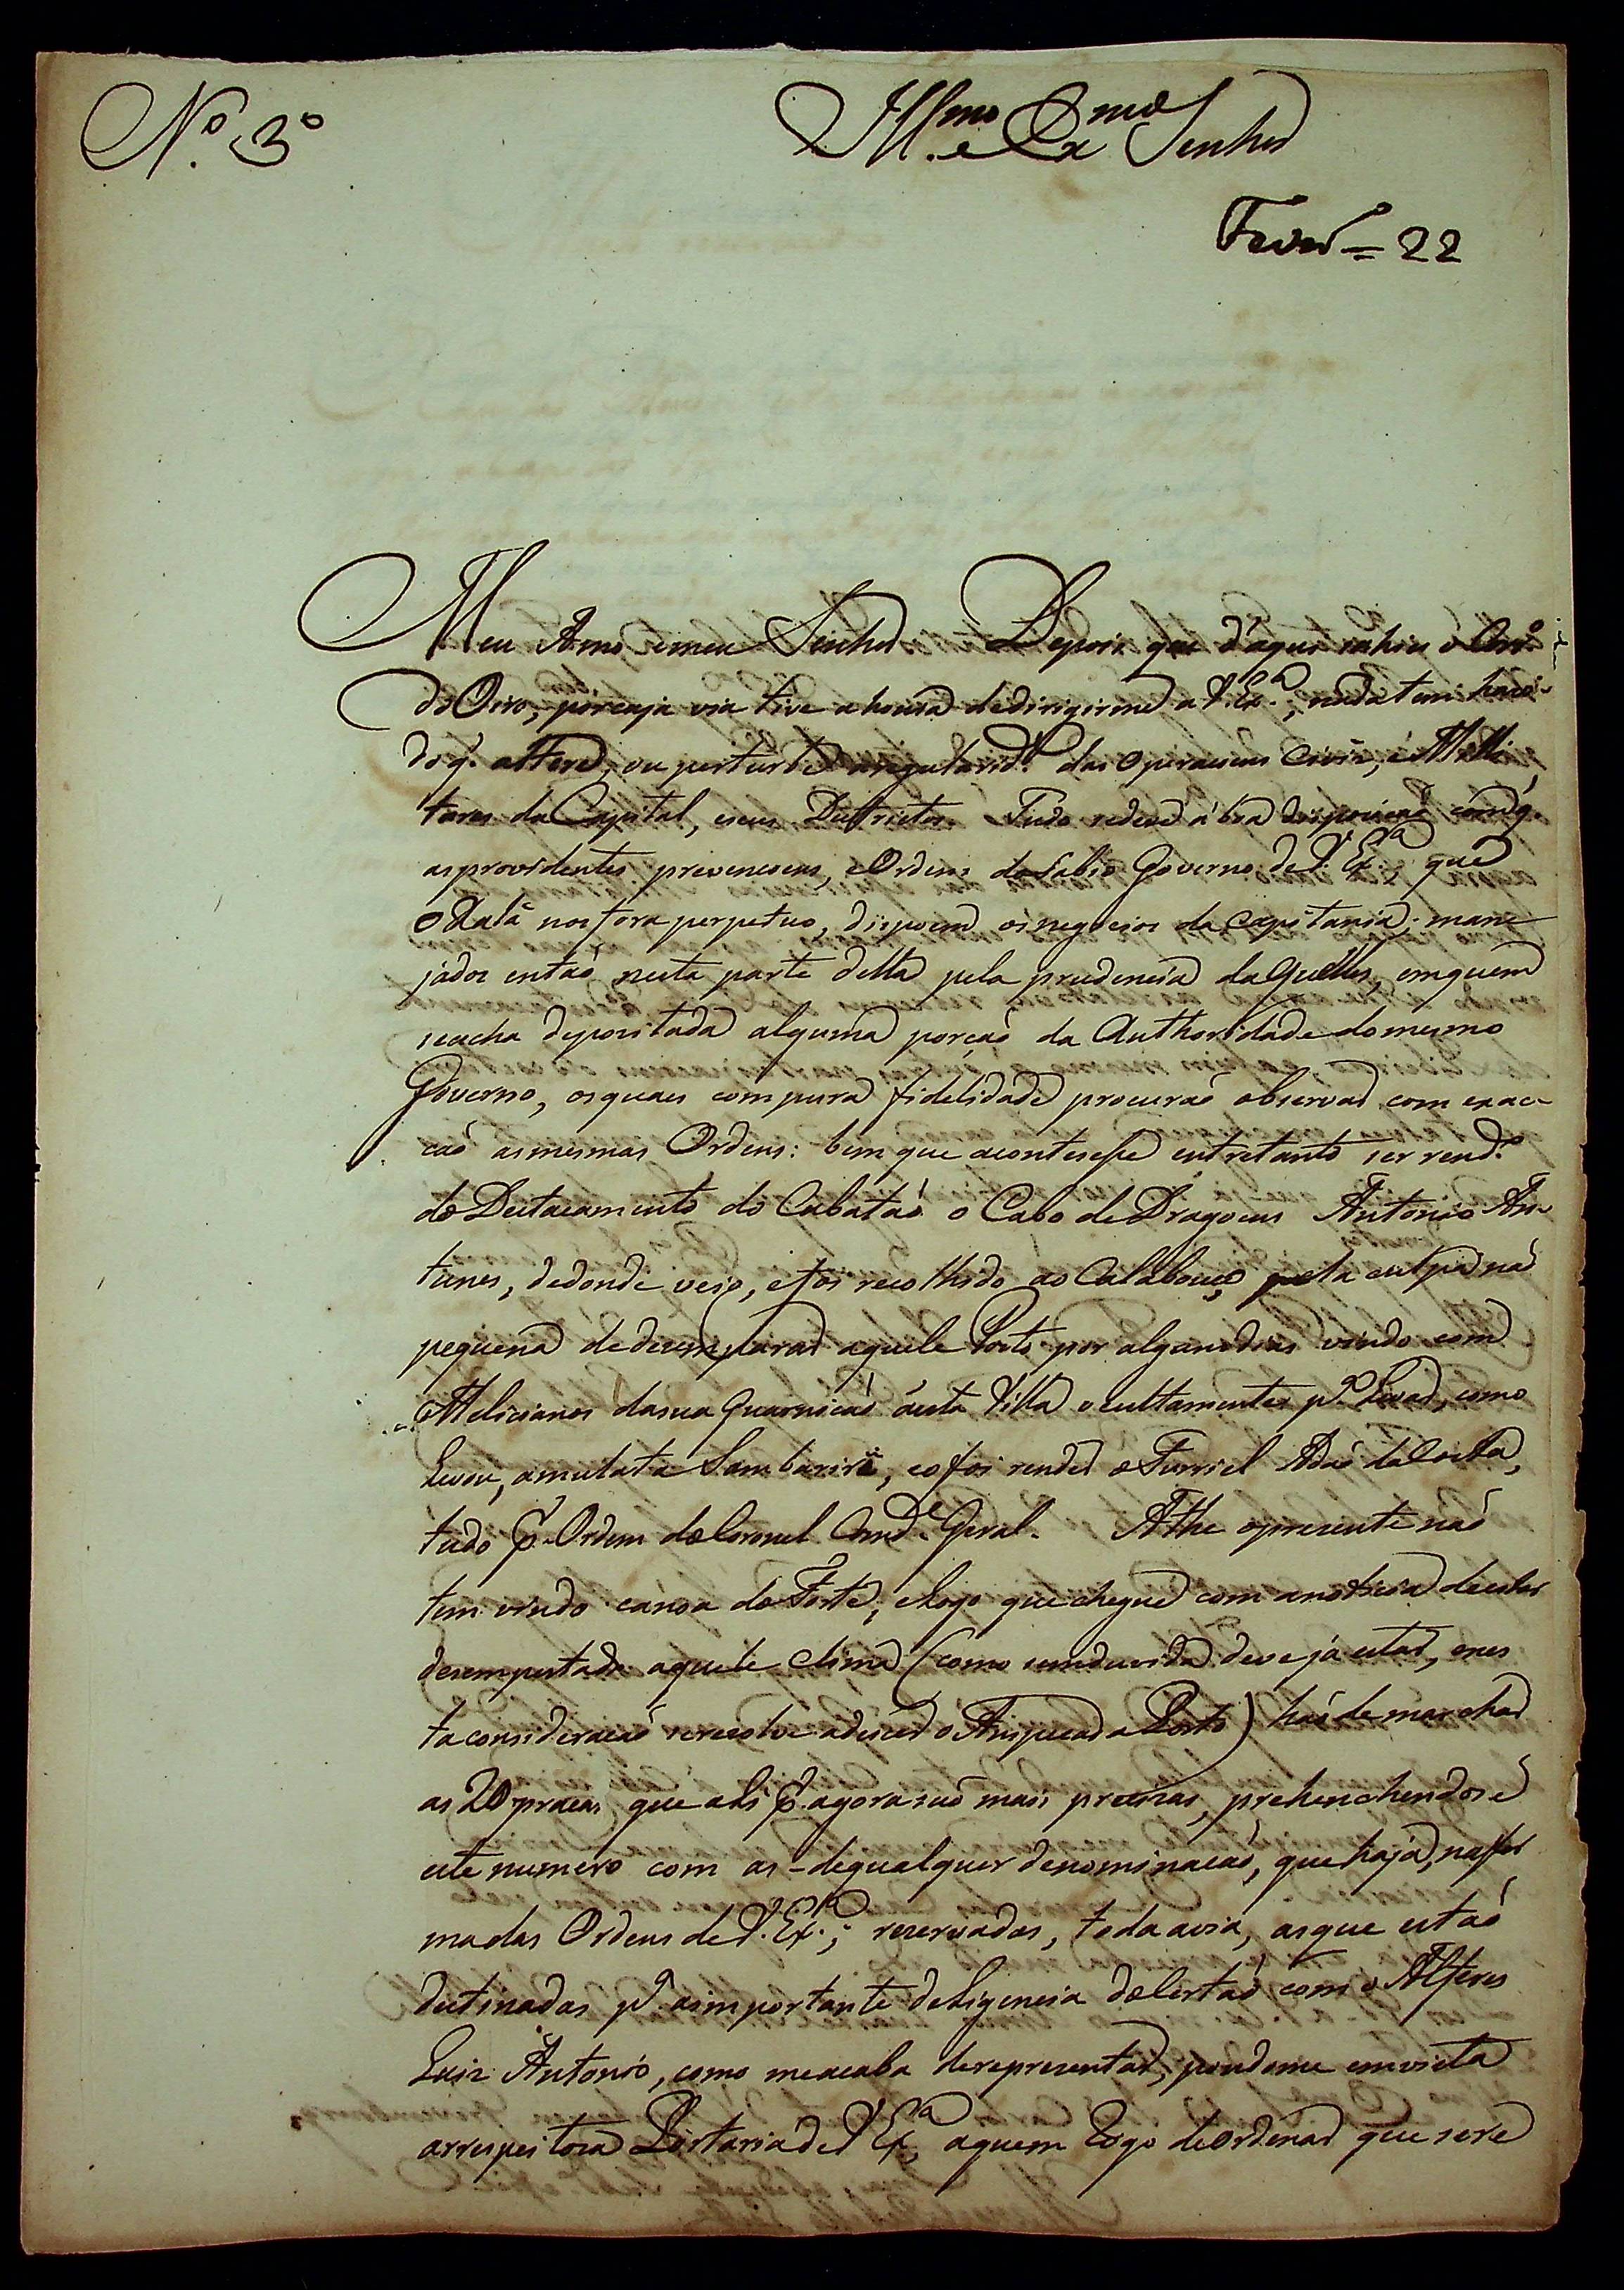 N.º 3º
Ill.mo e Ex.mo Senhor
Fever.º = 22
Meu Amo e meu Senhor Depois que d'aqui sahiu o Corr.º
do Oiro, por cuja via tive a honra de dirigirme a V. Ex.ª, nada tem havi-
do q. altere, ou perturbe a regularid.e das Operacoens Civis, e Milli
tares da Capital, e seus Destrictos. Tudo se deve á boa disposicaõ com q.
as providentes prevencoens, e Ordens do Sabio Governo de V. Ex.ª, que
o Dalá nos fora perpetuo, dispoem os negocios da Capitania; mane
jados entaõ nesta parte della pela prudencia daquelles, em quem
se acha depositada alguma porçaõ da Authoridade do mesmo
Governo, os quaes com pura fidelidade procuraõ observar com exac-
caõ as mesmas Ordens: bem que acontecesse entretanto ser rend.º
do Destacamento do Cubataõ o Cabo de Dragoens Antonio An-
tunes, dedonde veio, e foi recolhido ao Calabouço, pela culpa naõ
pequena de desemparar aquele Posto por alguns dias vindo com
Melicianos da sua Guarnicaõ á esta Villa occultamente p.ª Levar, como
Levou, a mulata Sambariré, e o foi render o Furriel Adaõ da Costa,
tudo p. Ordem do Coronel Com.de Geral. Athe o prezente naõ
tem vindo canoa do Forte; e logo que chegue com a noticia de estar
desempestado aquele clima (como sem duvida deve já estar, e nes
ta consideracaõ se resolve a descer o Anspecada Porto) haõ de marchar
as 20 pracas, que ali p. agora saõ mais precizas, prehenchendose
este numero com as - dequalquer denominacaõ, que haja, na for
ma das Ordens de V. Ex.ª; rezervadas, toda avia, as que estaõ
destinadas p.ª a importante deligencia do Certaõ com o Alferes
Luiz Antonio, como me acaba de representar, pondome em vista
a respeitosa Portaria de V. Ex.ª, a quem rogo de ordenar que se re